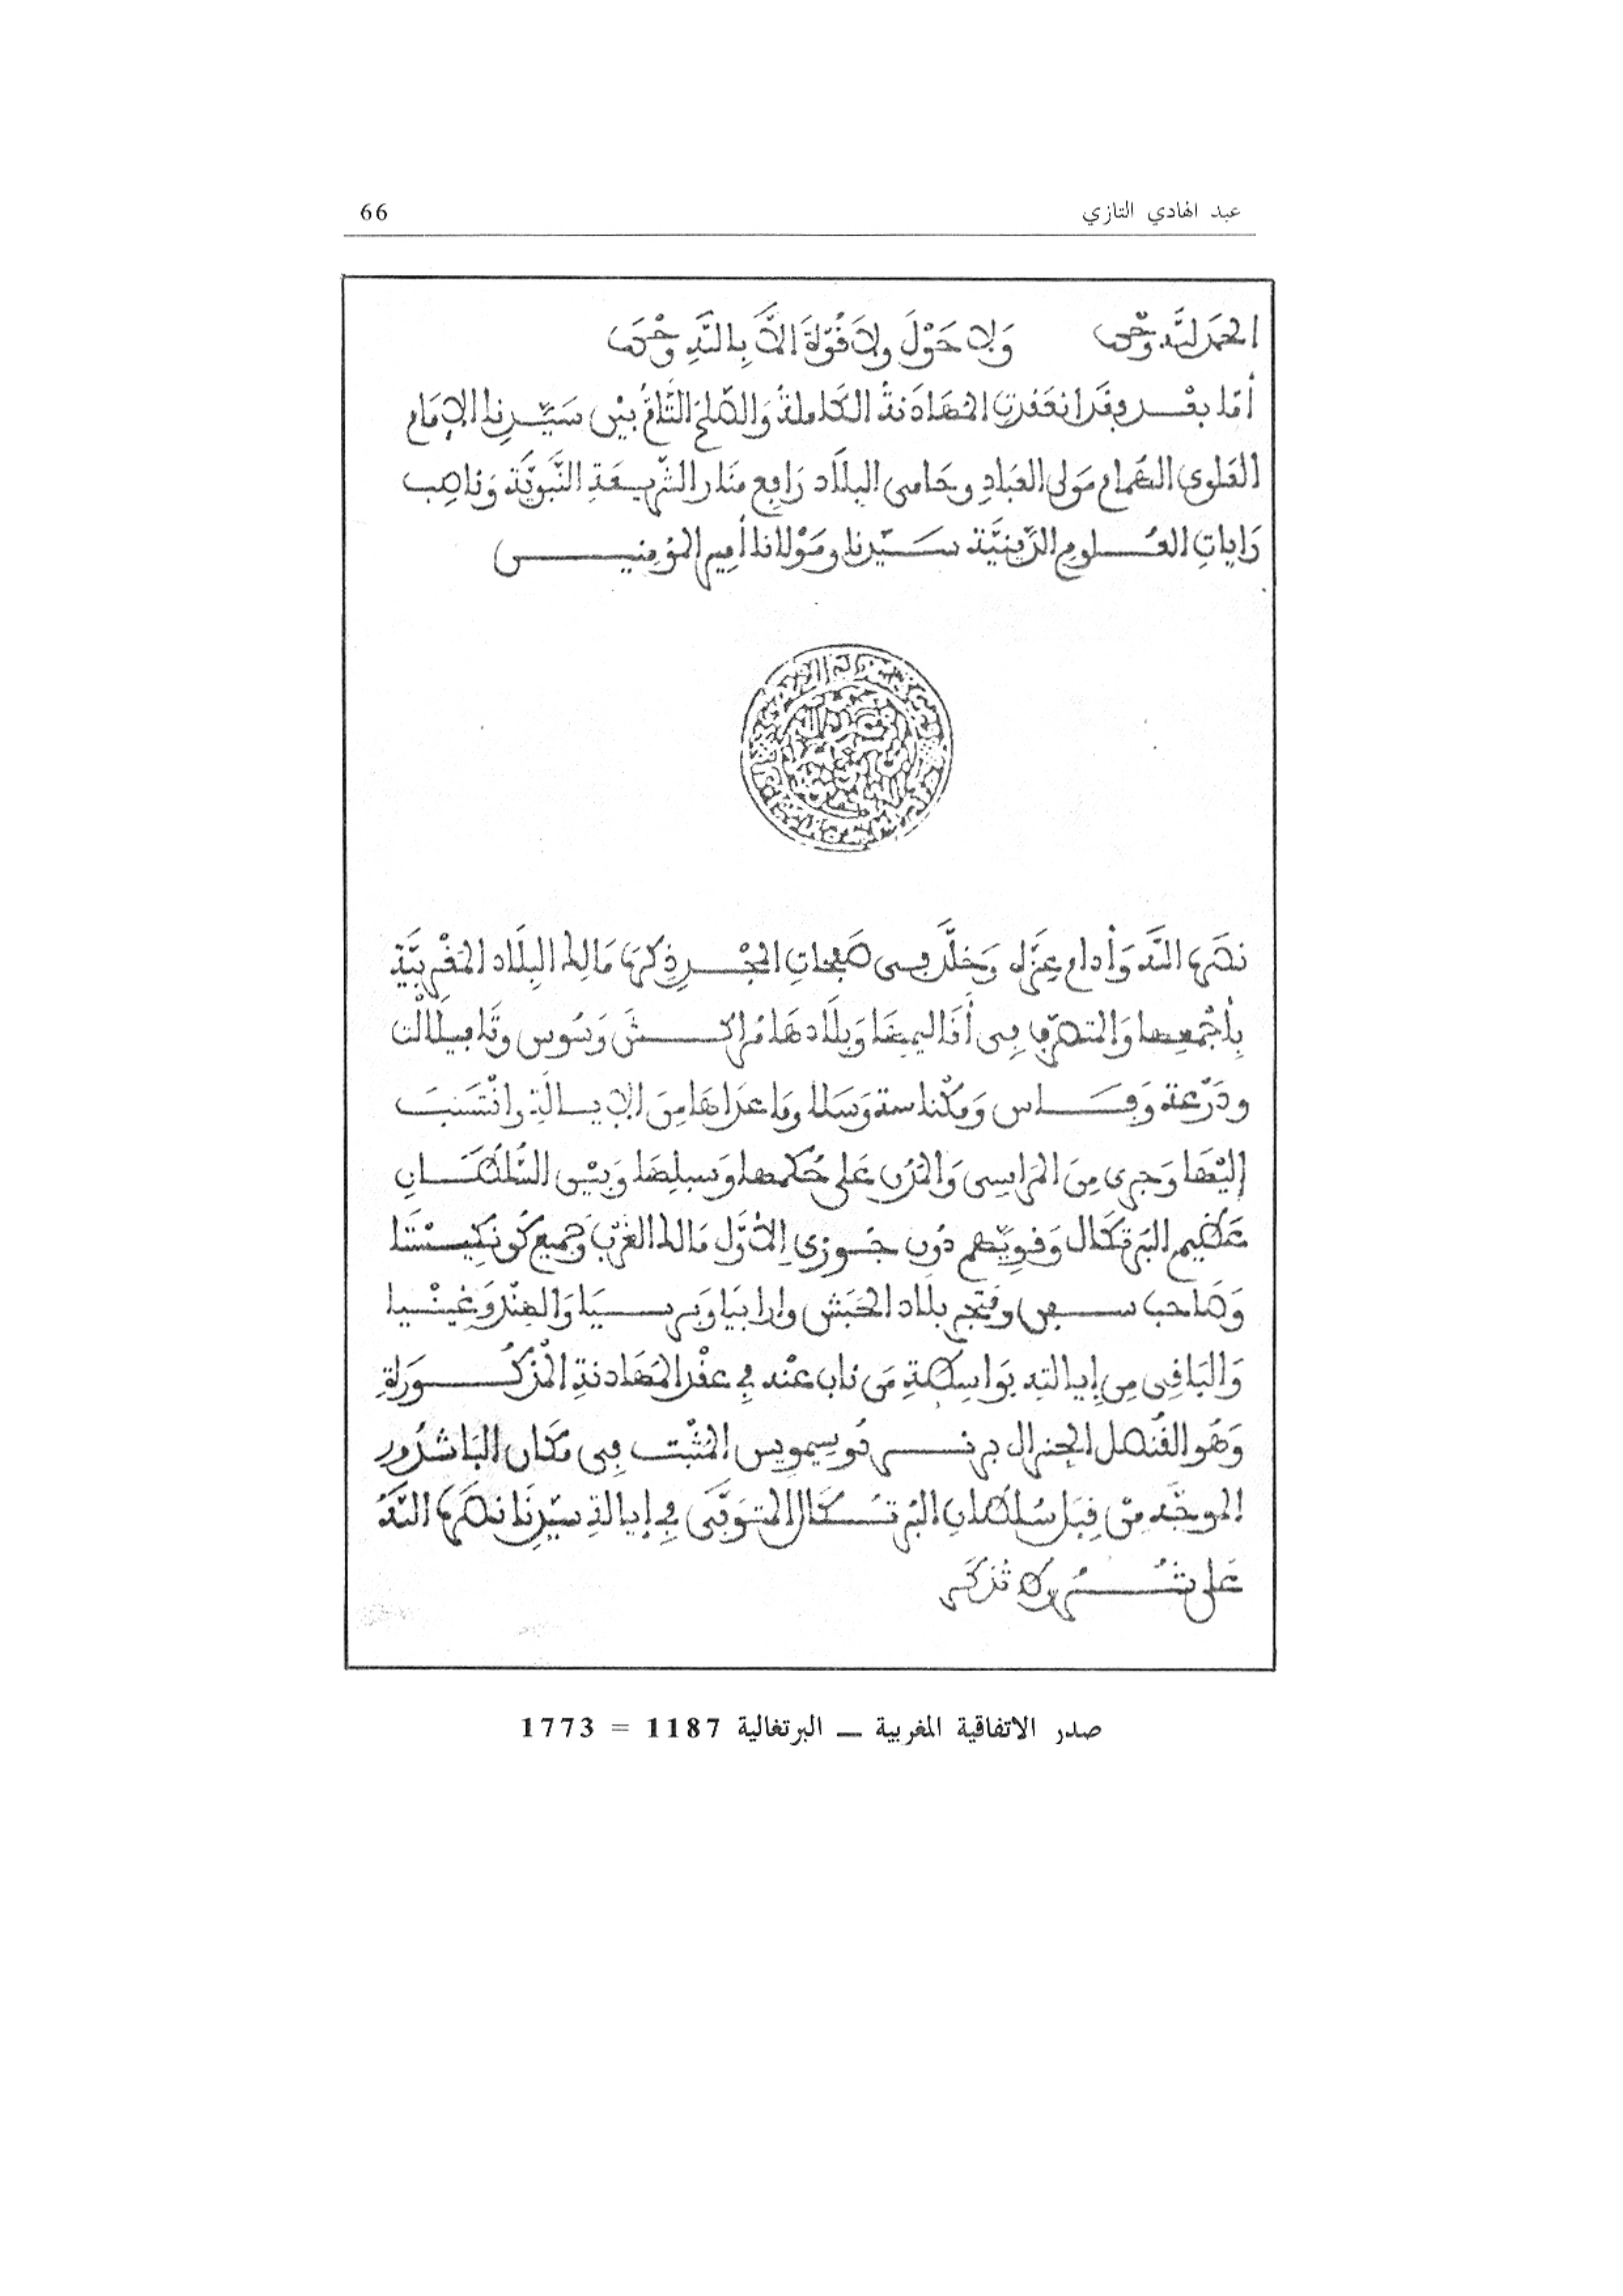 عبد الهادي التازي 66
الحمد لله وحده ولا حول ولا قوة الا بالله وحده
أما بعد فقد انعقدت المهادنة الكاملة والصلح التام بين سيدنا الإمام
العلوي الهمام مولى العباد وحامى البلاد رافع منار الشريعة النبوية وناصب
رايات العلوم الدينية سيدنا ومولانا أمير المؤمنين
نصره الله وأدام عزه وخلد في صفحات المجد ذكره مالك البلاد المغربية
بأجمعها والمتصرف في أقاليمها وبلادها مراكش وسوس وتافيلالت
ودرعة وفاس ومكناسة وسلا وما عداها من الإيالة وانتسب
إليها وجرى من المراسى والمدن على حكمها وسبلها وبين السلطان
عظيم البرتكال وقويهم دون جوزى الأول مالك الغرب وجميع كونكيستا
وصاحب سفن ومتجر بلاد الحبش وارابيا وبرسيا والهند وغينيا
والباقي من إيالته بواسطة من ناب عنه في عقد المهادنة المذكورة
وهو القنصل الجنرال برنر دوسيمويس المثبت في مكان الباشدور
الموجه من قبل سلطان البرتكال المتوفى في إيالة سيدنا نصره الله
على شروط تذكر
صدر الاتفاقية المغربية ــ البرتغالية 1187 = 1773